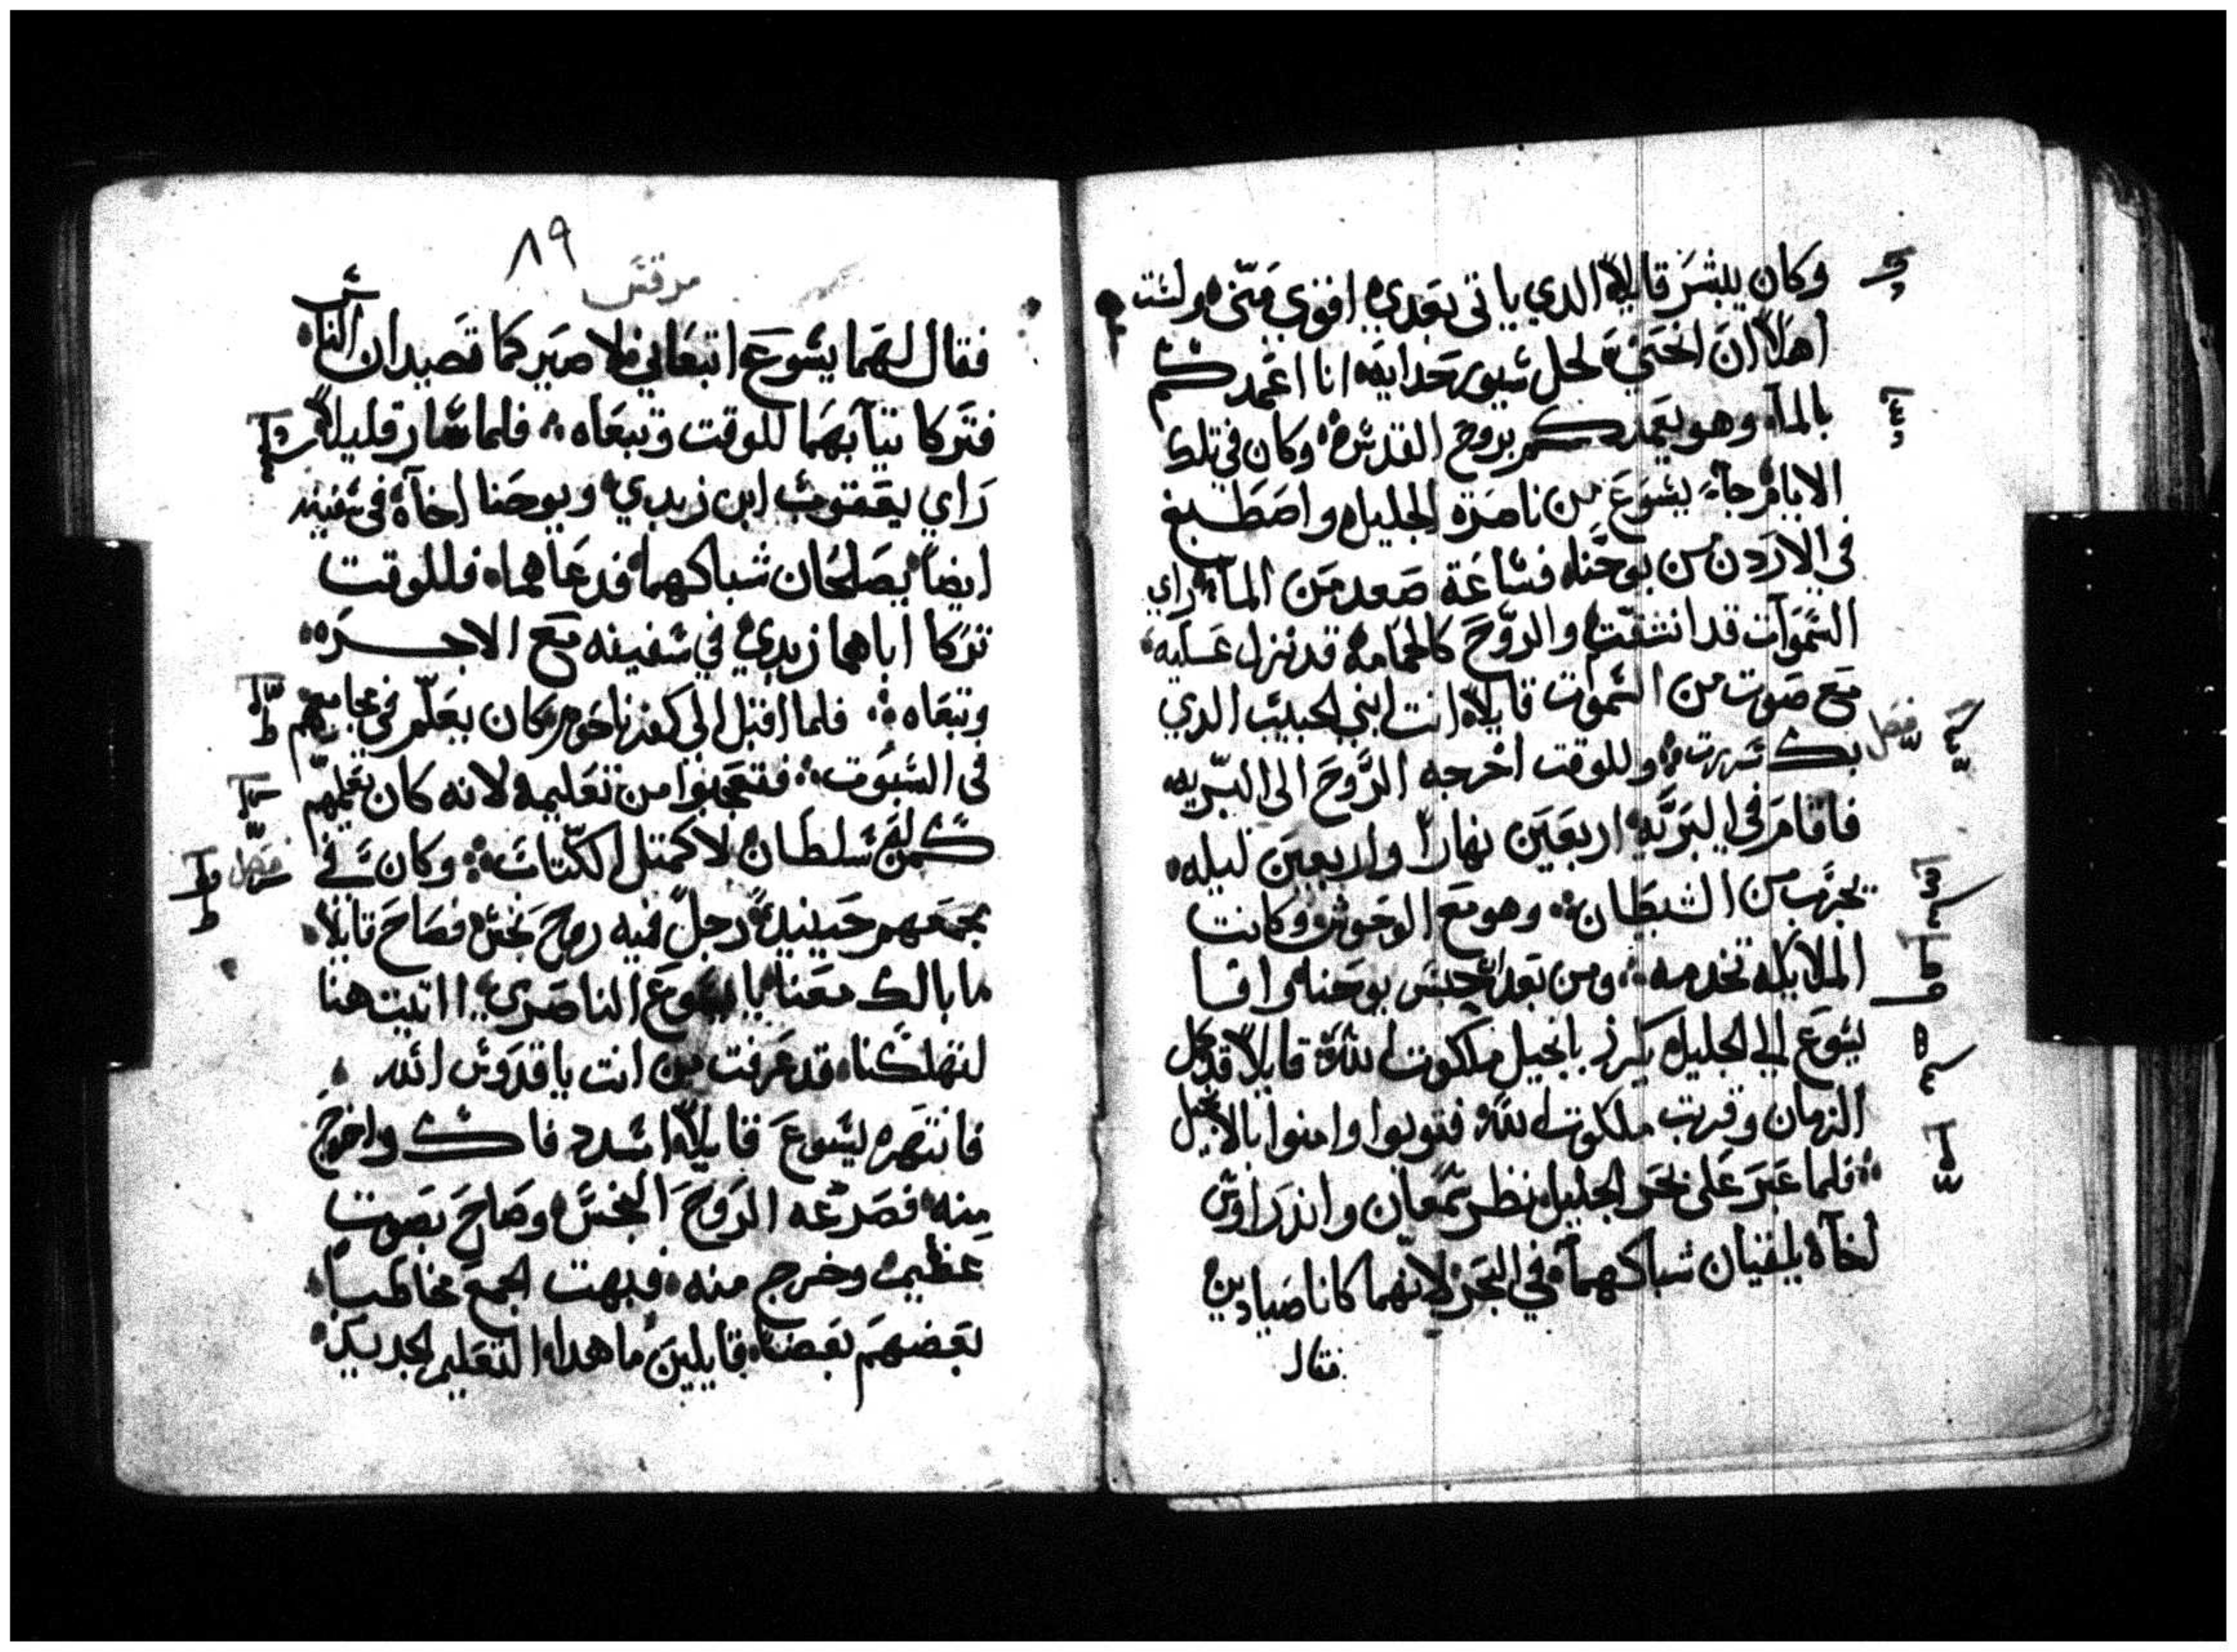 وكان يبشر قايلاً الدي ياتى بعدي افوي منى ولست
اهلاً ان انحني لحل سيور حدايه انا اعمدكم
بالمآ وهو يعمدكم بروح القدس وكان في تلك
الايام جآ يسوع من ناصرة الجليل واصطبغ
في الاردن من يوحنا فساعة صعد من المآ راي
السموآت قد انشقت والروح كالحمامه قد نزل عليه
مع صوت من السموت قايلاً انت ابني الحبيب الدي
فصل
بك سررت وللوقت اخرجه الروح الى البريه
فاقام في البريه اربعين نهاراً واربعين ليله
يجرب من الشيطان وهو مع الوحوش وكانت
الملايكه تخدمه ومن بعد حبس يوحنا وافا
يسوع الي الجليل يكرز بانجيل ملكوت الله قايلاً قد كمل
الزمان وقربت ملكوت الله فتوبوا وامنوا بالانجيل
فلما عبر على بحر الجليل نظر سمعان واندراوس
اخاه يلقيان شباكهما في البحر لانهما كانا صيادين
فقال
٨٩
مرقس
فقال لهما يسوع اتبعاني فلاصيركما تصيدان الناس
فتركا تيابهما للوقت وتبعاه فلما سار قليلاً
راي يعقوب ابن زبدي ويوحنا اخآه في سفينه
ايضاً يصلحان شباكهما فدعاهما فللوقت
تركا اباهما زبدي في سفينه مع الاجره
وتبعاه فلما اقبل الي كفرناحوم وكان يعلم في مجامعهم
في السبوت فتعجبوا من تعليمه لانه كان يعلمهم
كمن له سلطان لا كمتل الكتاب وكان في
فصل
مجمعهم حينيد رجل فيه روح نجس فصاح قايلاً
ما بالك معنا يا يسوع الناصري اتيت هنا
لتهلكنا قد عرفت من انت يا قدوس الله
فانتهره يسوع قايلاً اسدد فاك واخرج
منه فصرعه الروح النجس وصاح بصوت
عظيم وخرج منه فبهت الجمع مخاطباً
بعضهم بعضاً قايلين ما هدا التعليم الجديد